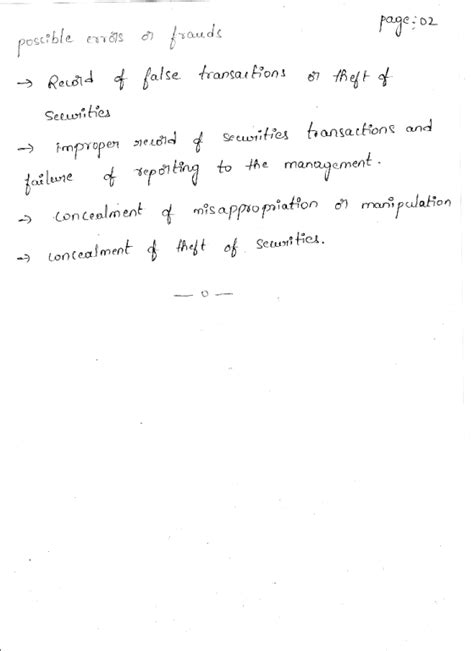 page: 02
possible errors or frauds
→ Record of false transactions or theft of
securities
→ improper record of securities transactions and
failure of reporting to the management.
→ concealment of misappropriation or manipulation
→ concealment of theft of securities.
— 0 —